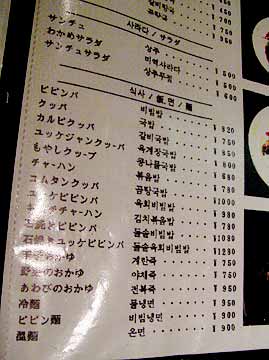 사라다 / サラダ
サンチュ 상추 ¥500
わかめサラダ 미역사라다
サンチュサラダ 상추무침 ¥600
식사 / 飯, 麺 / 麺
ビビンバ 비빔밥 ¥820
クッパ 국밥 ¥750
カルビクッパ 갈비국밥
ユッケジャンクッパ 육개장국밥
もやしクッープ 콩나물국밥
チャーハン 볶음밥 ¥780
コムタンクッパ 곰탕국밥
ユッケビビンバ 육회비빔밥 ¥1000
キムチチャーハン 김치볶음밥 ¥980
石焼きビビンバ 돌솥비빔밥
石焼きユッケビビンバ 돌솥육회비빔밥 ¥1280
玉子のおかゆ 계란죽 ¥750
野菜のおかゆ 야채죽 ¥750
あわびのおかゆ 전복죽 ¥950
冷麺 물냉면 ¥900
ビビン麺 비빔냉면 ¥950
温麺 온면 ¥900